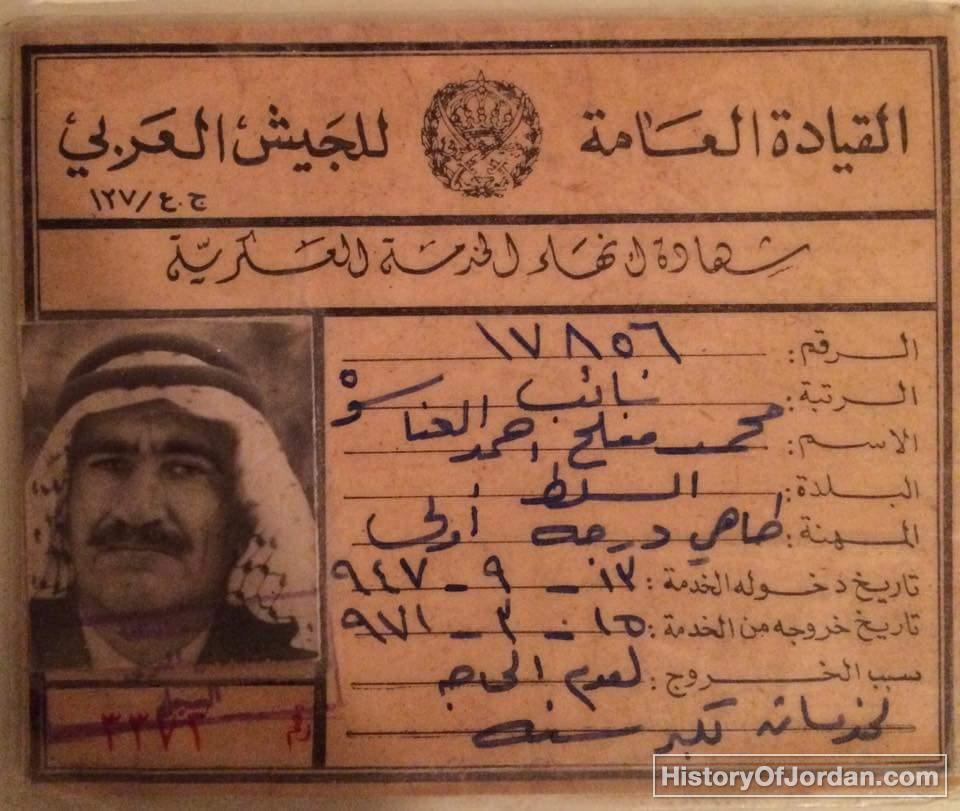 القيادة العامة للجيش العربي
ج.ع/١٢٧
شهادة انهاء الخدمة العسكرية
الرقم: ١٧٨٥٦
الرتبة: نائب
الاسم: محمد مفلح احمد العناسوه
البلدة: السلط
المهنة: طاهي درجه أولى
تاريخ دخوله الخدمة: ١٣ - ٩ - ٩٤٧
تاريخ خروجه من الخدمة: ١٥ - ٣ - ٩٧١
سبب الخروج: لعدم الحاجه
لخدماته لكبر سنه
السجل
رقم ٣٣٧٣
HistoryOfJordan.com